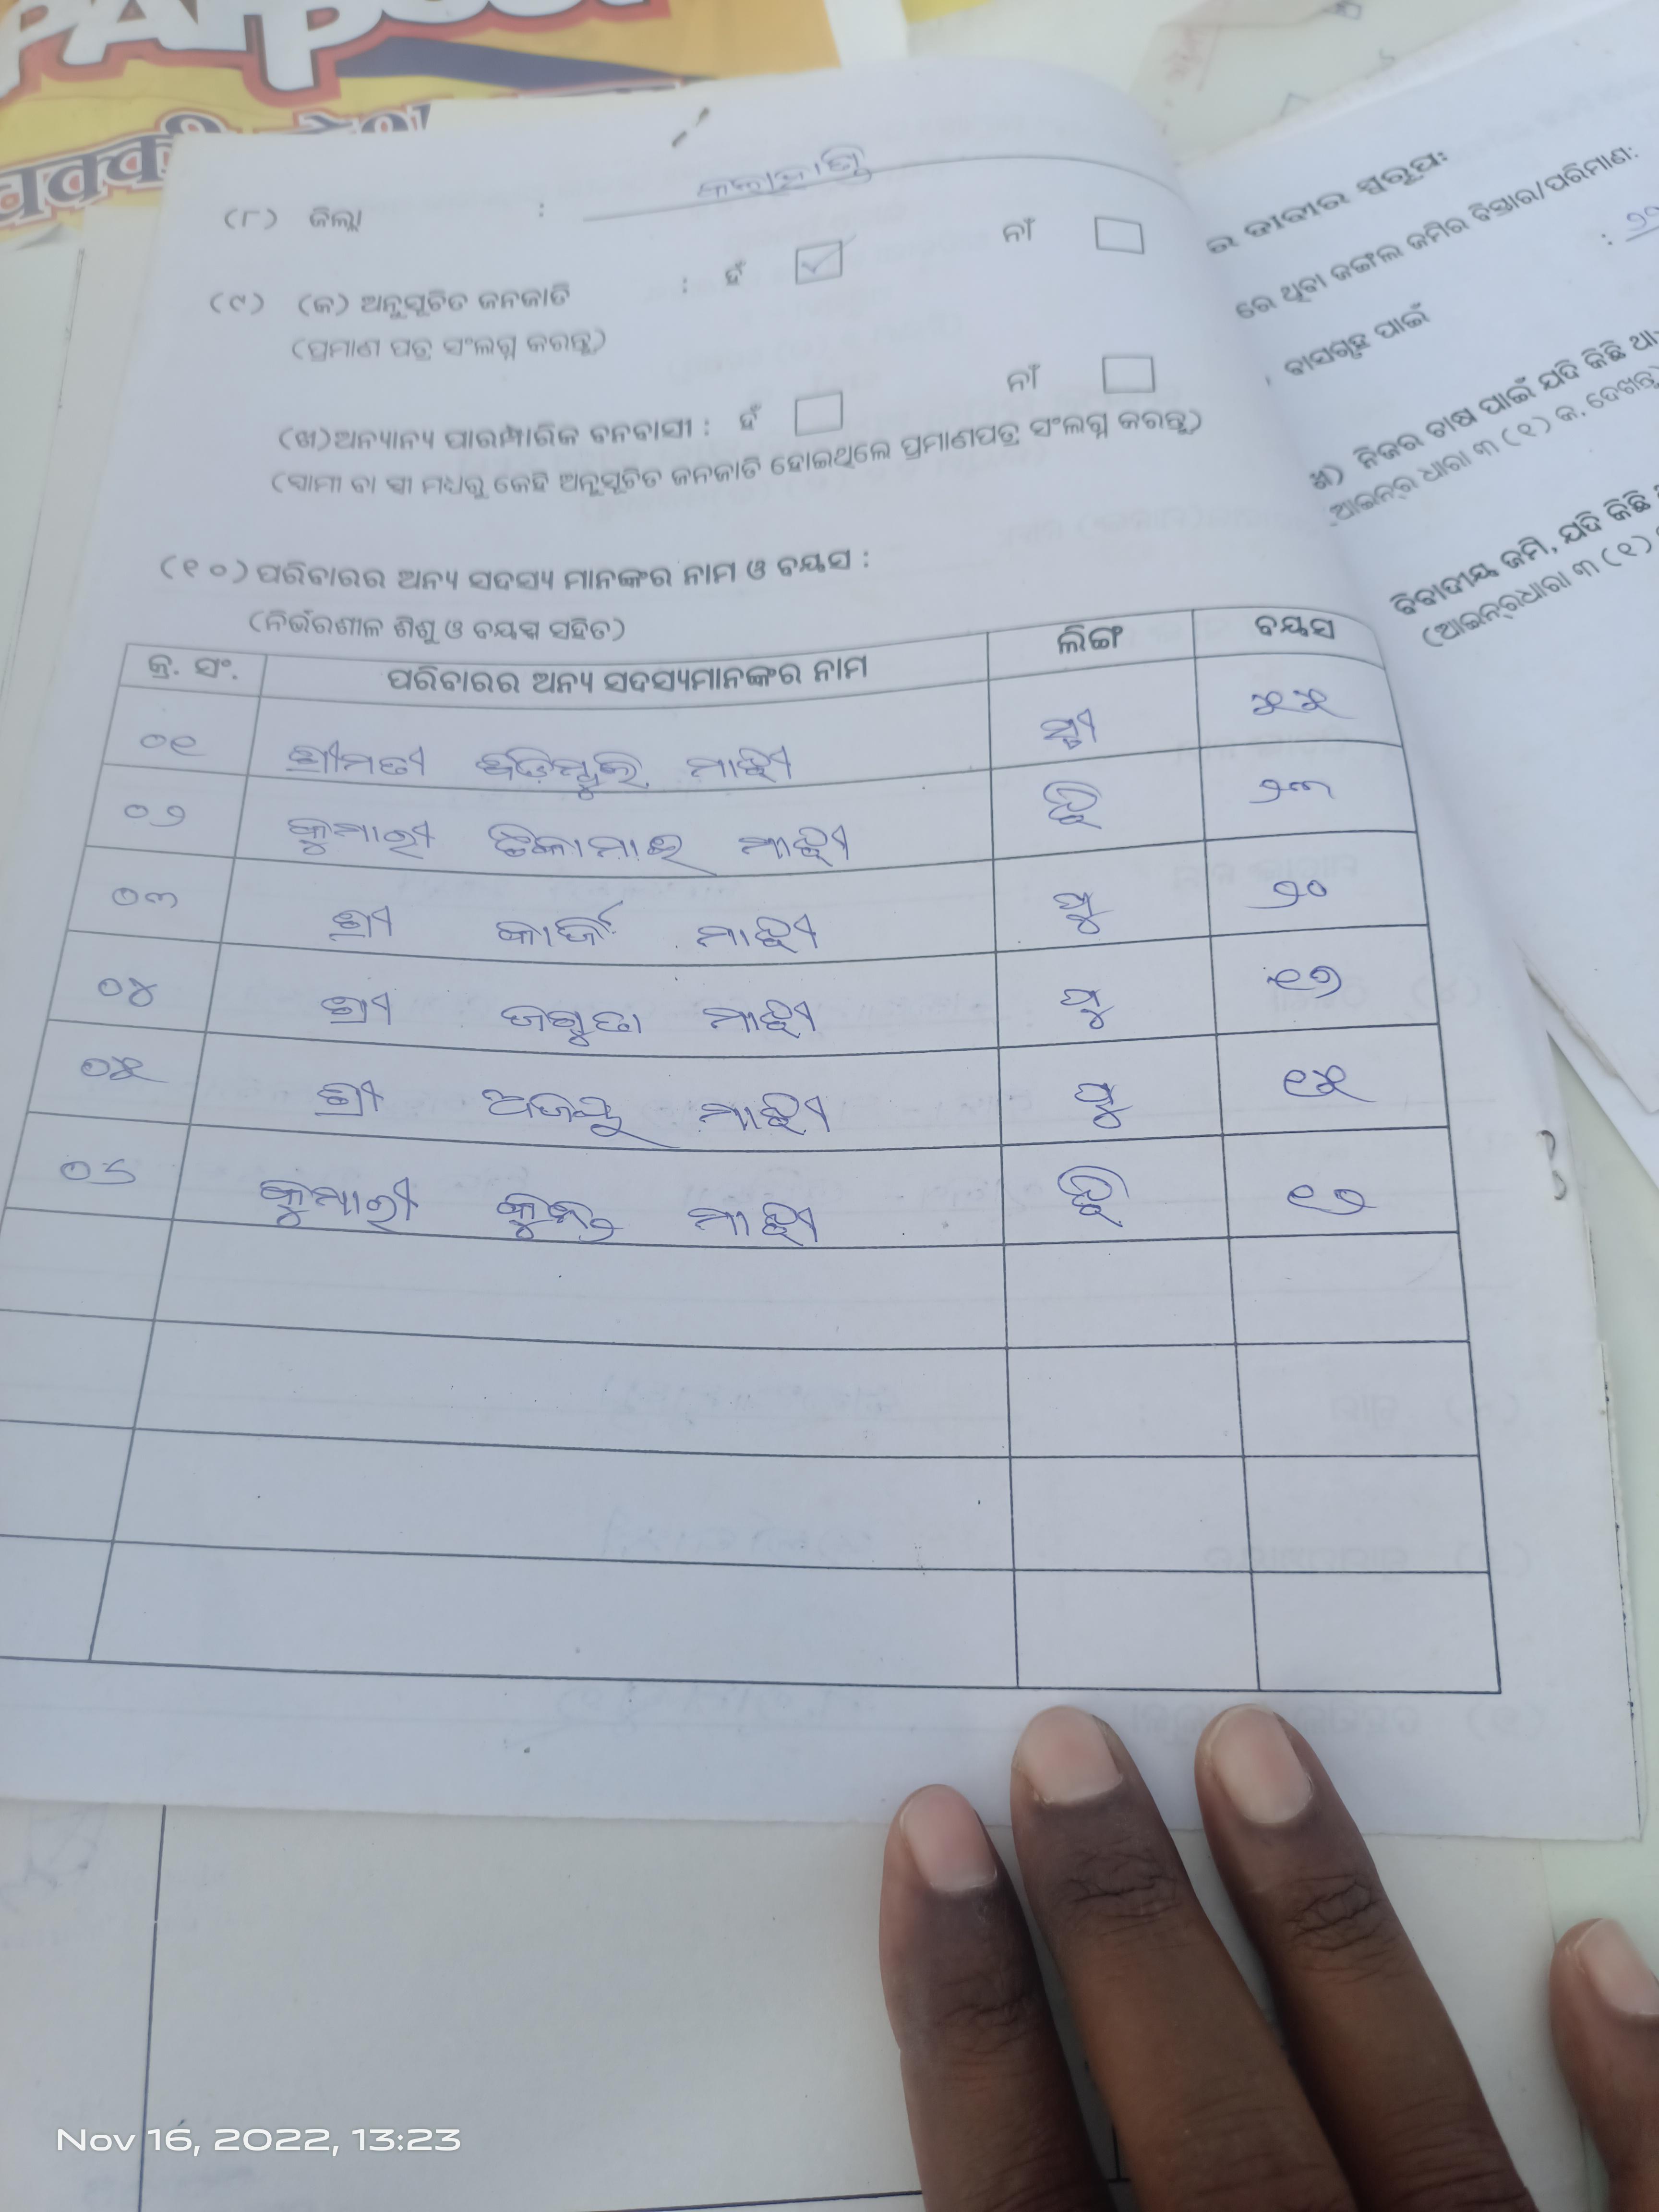 (୮) ଜିଲ୍ଲା : କଳାହାଣ୍ଡି
(୯) (କ) ଅନୁସୂଚିତ ଜନଜାତି : ହଁ ✓ ନାଁ
(ପ୍ରମାଣ ପତ୍ର ସଂଲଗ୍ନ କରନ୍ତୁ)
(ଖ) ଅନ୍ୟାନ୍ୟ ପାରମ୍ପାରିକ ବନବାସୀ : ହଁ ନାଁ
(ସ୍ୱାମୀ ବା ସ୍ତ୍ରୀ ମଧ୍ୟରୁ କେହି ଅନୁସୂଚିତ ଜନଜାତି ହୋଇଥିଲେ ପ୍ରମାଣପତ୍ର ସଂଲଗ୍ନ କରନ୍ତୁ)
(୧୦) ପରିବାରର ଅନ୍ୟ ସଦସ୍ୟ ମାନଙ୍କର ନାମ ଓ ବୟସ :
(ନିର୍ଭରଶୀଳ ଶିଶୁ ଓ ବୟସ୍କ ସହିତ)
କ୍ର. ସଂ. ପରିବାରର ଅନ୍ୟ ସଦସ୍ୟମାନଙ୍କର ନାମ ଲିଙ୍ଗ ବୟସ
୦୧ ଶ୍ରୀମତୀ ମାଝୀ ସ୍ତ୍ରୀ ୫୫
୦୨ କୁମାରୀ ମାଝୀ ୨୩
୦୩ ଶ୍ରୀ ମାଝୀ ପୁ ୨୦
୦୪ ଶ୍ରୀ ମାଝୀ ପୁ ୧୭
୦୫ ଶ୍ରୀ ମାଝୀ ପୁ ୧୫
୦୬ କୁମାରୀ ମାଝୀ ୧୨
ର ଦାବୀର ସ୍ୱରୂପଃ
ରେ ଥିବା ଜଙ୍ଗଲ ଜମିର ବିସ୍ତାର/ପରିମାଣ:
ବାସଗୃହ ପାଇଁ
ଖ) ନିଜର ଚାଷ ପାଇଁ ଯଦି କିଛି ଥା
ଆଇନ୍‌ର ଧାରା ୩ (୧) କ. ଦେଖନ୍ତୁ
ବିବାଦୀୟ ଜମି, ଯଦି କିଛି
(ଆଇନ୍‌ର ଧାରା ୩ (୧)
Nov 16, 2022, 13:23